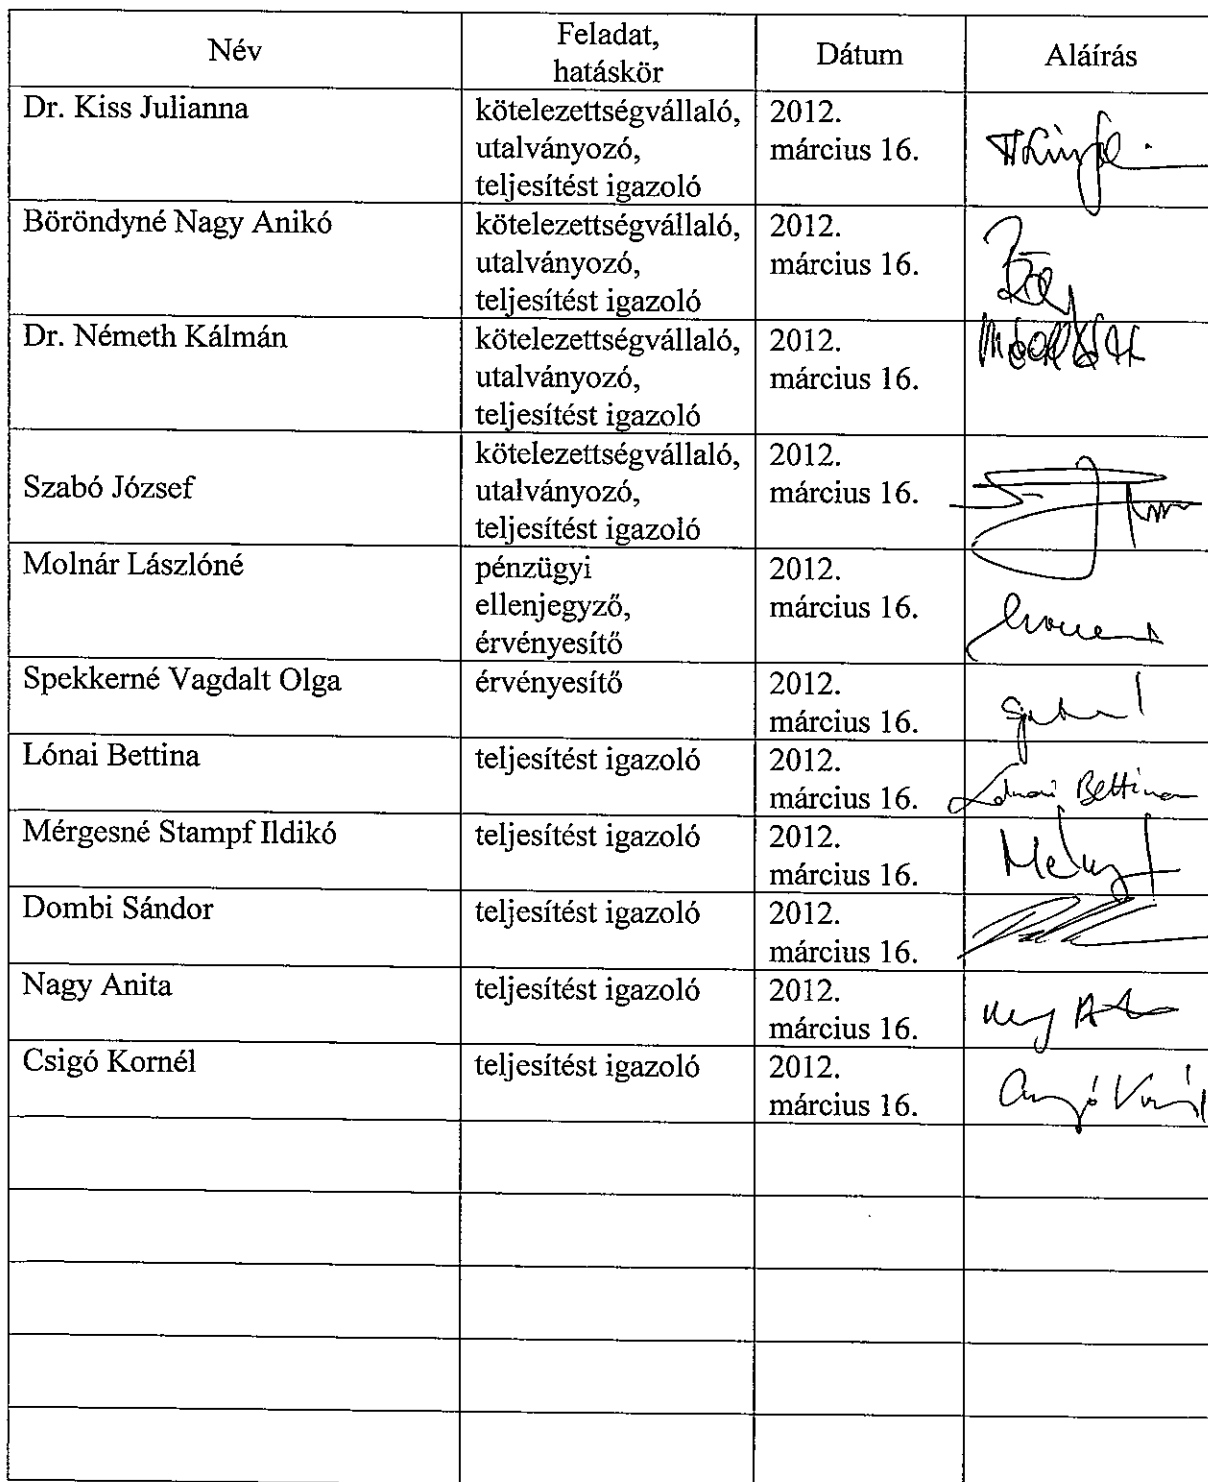 Név
Feladat,
hatáskör
Dátum
Aláírás
Dr. Kiss Julianna
kötelezettségvállaló,
utalványozó,
teljesítést igazoló
2012.
március 16.
Böröndyné Nagy Anikó
kötelezettségvállaló,
utalványozó,
teljesítést igazoló
2012.
március 16.
Dr. Németh Kálmán
kötelezettségvállaló,
utalványozó,
teljesítést igazoló
2012.
március 16.
Szabó József
kötelezettségvállaló,
utalványozó,
teljesítést igazoló
2012.
március 16.
Molnár Lászlóné
pénzügyi
ellenjegyző,
érvényesítő
2012.
március 16.
Spekkerné Vagdalt Olga
érvényesítő
2012.
március 16.
Lónai Bettina
teljesítést igazoló
2012.
március 16.
Lónai Bettina
Mérgesné Stampf Ildikó
teljesítést igazoló
2012.
március 16.
Dombi Sándor
teljesítést igazoló
2012.
március 16.
Nagy Anita
teljesítést igazoló
2012.
március 16.
Csigó Kornél
teljesítést igazoló
2012.
március 16.